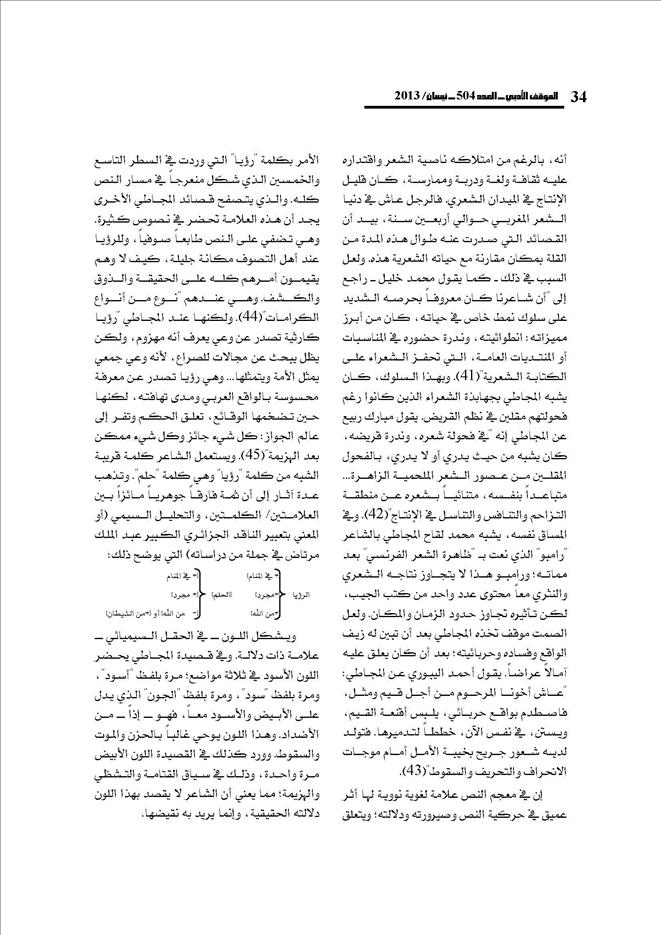 34 الموقف الأدبي ــ العدد 504 ــ نيسان/ 2013
أنه، بالرغم من امتلاكه ناصية الشعر واقتداره
عليه ثقافة ولغة ودربة وممارسة، كان قليل
الإنتاج في الميدان الشعري. فالرجل عاش في دنيا
الشعر المغربي حوالي أربعين سنة، بيد أن
القصائد التي صدرت عنه طوال هذه المدة من
القلة بمكان مقارنة مع حياته الشعرية هذه. ولعل
السبب في ذلك ـ كما يقول محمد خليل ـ راجع
إلى "أن شاعرنا كان معروفاً بحرصه الشديد
على سلوك نمط خاص في حياته، كان من أبرز
مميزاته: انطوائيته، وندرة حضوره في المناسبات
أو المنتديات العامة، التي تحفز الشعراء على
الكتابة الشعرية"(41). وبهذا السلوك، كان
يشبه المجاطي بجهابذة الشعراء الذين كانوا رغم
فحولتهم مقلين في نظم القريض. يقول مبارك ربيع
عن المجاطي إنه "في فحولة شعره، وندرة قريضه،
كان يشبه من حيث يدري أو لا يدري، بالفحول
المقلين من عصور الشعر الملحمية الزاهرة...
متباعداً بنفسه، متنائياً بشعره عن منطقة
التزاحم والتنافس والتناسل في الإنتاج"(42). وفي
المساق نفسه، يشبه محمد لقاح المجاطي بالشاعر
"رامبو" الذي نعت بـ "ظاهرة الشعر الفرنسي" بعد
مماته؛ ورامبو هذا لا يتجاوز نتاجه الشعري
والنثري معاً محتوى عدد واحد من كتب الجيب،
لكن تأثيره تجاوز حدود الزمان والمكان. ولعل
الصمت موقف تخذه المجاطي بعد أن تبين له زيف
الواقع وفساده وحربائيته؛ بعد أن كان يعلق عليه
آمالاً عراضاً. يقول أحمد اليبوري عن المجاطي:
"عاش أخونا المرحوم من أجل قيم ومثل،
فاصطدم بواقع حربائي، يلبس أقنعة القيم،
ويسنن، في نفس الآن، خططاً لتدميرها. فتولد
لديه شعور جريح بخيبة الأمل أمام موجات
الانحراف والتحريف والسقوط"(43).
إن في معجم النص علامة لغوية نووية لها أثر
عميق في حركية النص وصيرورته ودلالته؛ ويتعلق
الأمر بكلمة "رؤيا" التي وردت في السطر التاسع
والخمسين الذي شكل منعرجاً في مسار النص
كله. والذي يتصفح قصائد المجاطي الأخرى
يجد أن هذه العلامة تحضر في نصوص كثيرة.
وهي تضفي على النص طابعاً صوفياً، وللرؤيا
عند أهل التصوف مكانة جليلة، كيف لا وهم
يقيمون أمرهم كله على الحقيقة والذوق
والكشف. وهي عندهم "نوع من أنواع
الكرامات"(44). ولكنها عند المجاطي "رؤيا
كارثية تصدر عن وعي يعرف أنه مهزوم، ولكن
يظل يبحث عن مجالات للصراع، لأنه وعي جمعي
يمثل الأمة ويتمثلها... وهي رؤيا تصدر عن معرفة
محسوسة بالواقع العربي ومدى تهافته، لكنها
حين تضخمها الوقائع، تعلق الحكم وتفر إلى
عالم الجواز: كل شيء جائز وكل شيء ممكن
بعد الهزيمة"(45). ويستعمل الشاعر كلمة قريبة
الشبه من كلمة "رؤيا" وهي كلمة "حلم". وتذهب
عدة آثار إلى أن ثمة فارقاً جوهرياً مائزاً بين
العلامتين/ الكلمتين، والتحليل السيمي (أو
المعني بتعبير الناقد الجزائري الكبير عبد الملك
مرتاض في جملة من دراساته) التي يوضح ذلك:
[+ في المنام] [+ في المنام
الرؤيا +مجرد] الحلم] [+ مجرد]
+من الله] [- من الله] أو (+من الشيطان)
ويشكل اللون ــ في الحقل السيميائي ــ
علامة ذات دلالة. وفي قصيدة المجاطي يحضر
اللون الأسود في ثلاثة مواضع؛ مرة بلفظ "أسود"،
ومرة بلفظ "سود"، ومرة بلفظ "الجون" الذي يدل
على الأبيض والأسود معاً، فهو ــ إذاً ــ من
الأضداد. وهذا اللون يوحي غالباً بالحزن والموت
والسقوط. وورد كذلك في القصيدة اللون الأبيض
مرة واحدة، وذلك في سياق القتامة والتشظي
والهزيمة؛ مما يعني أن الشاعر لا يقصد بهذا اللون
دلالته الحقيقية، وإنما يريد به نقيضها.